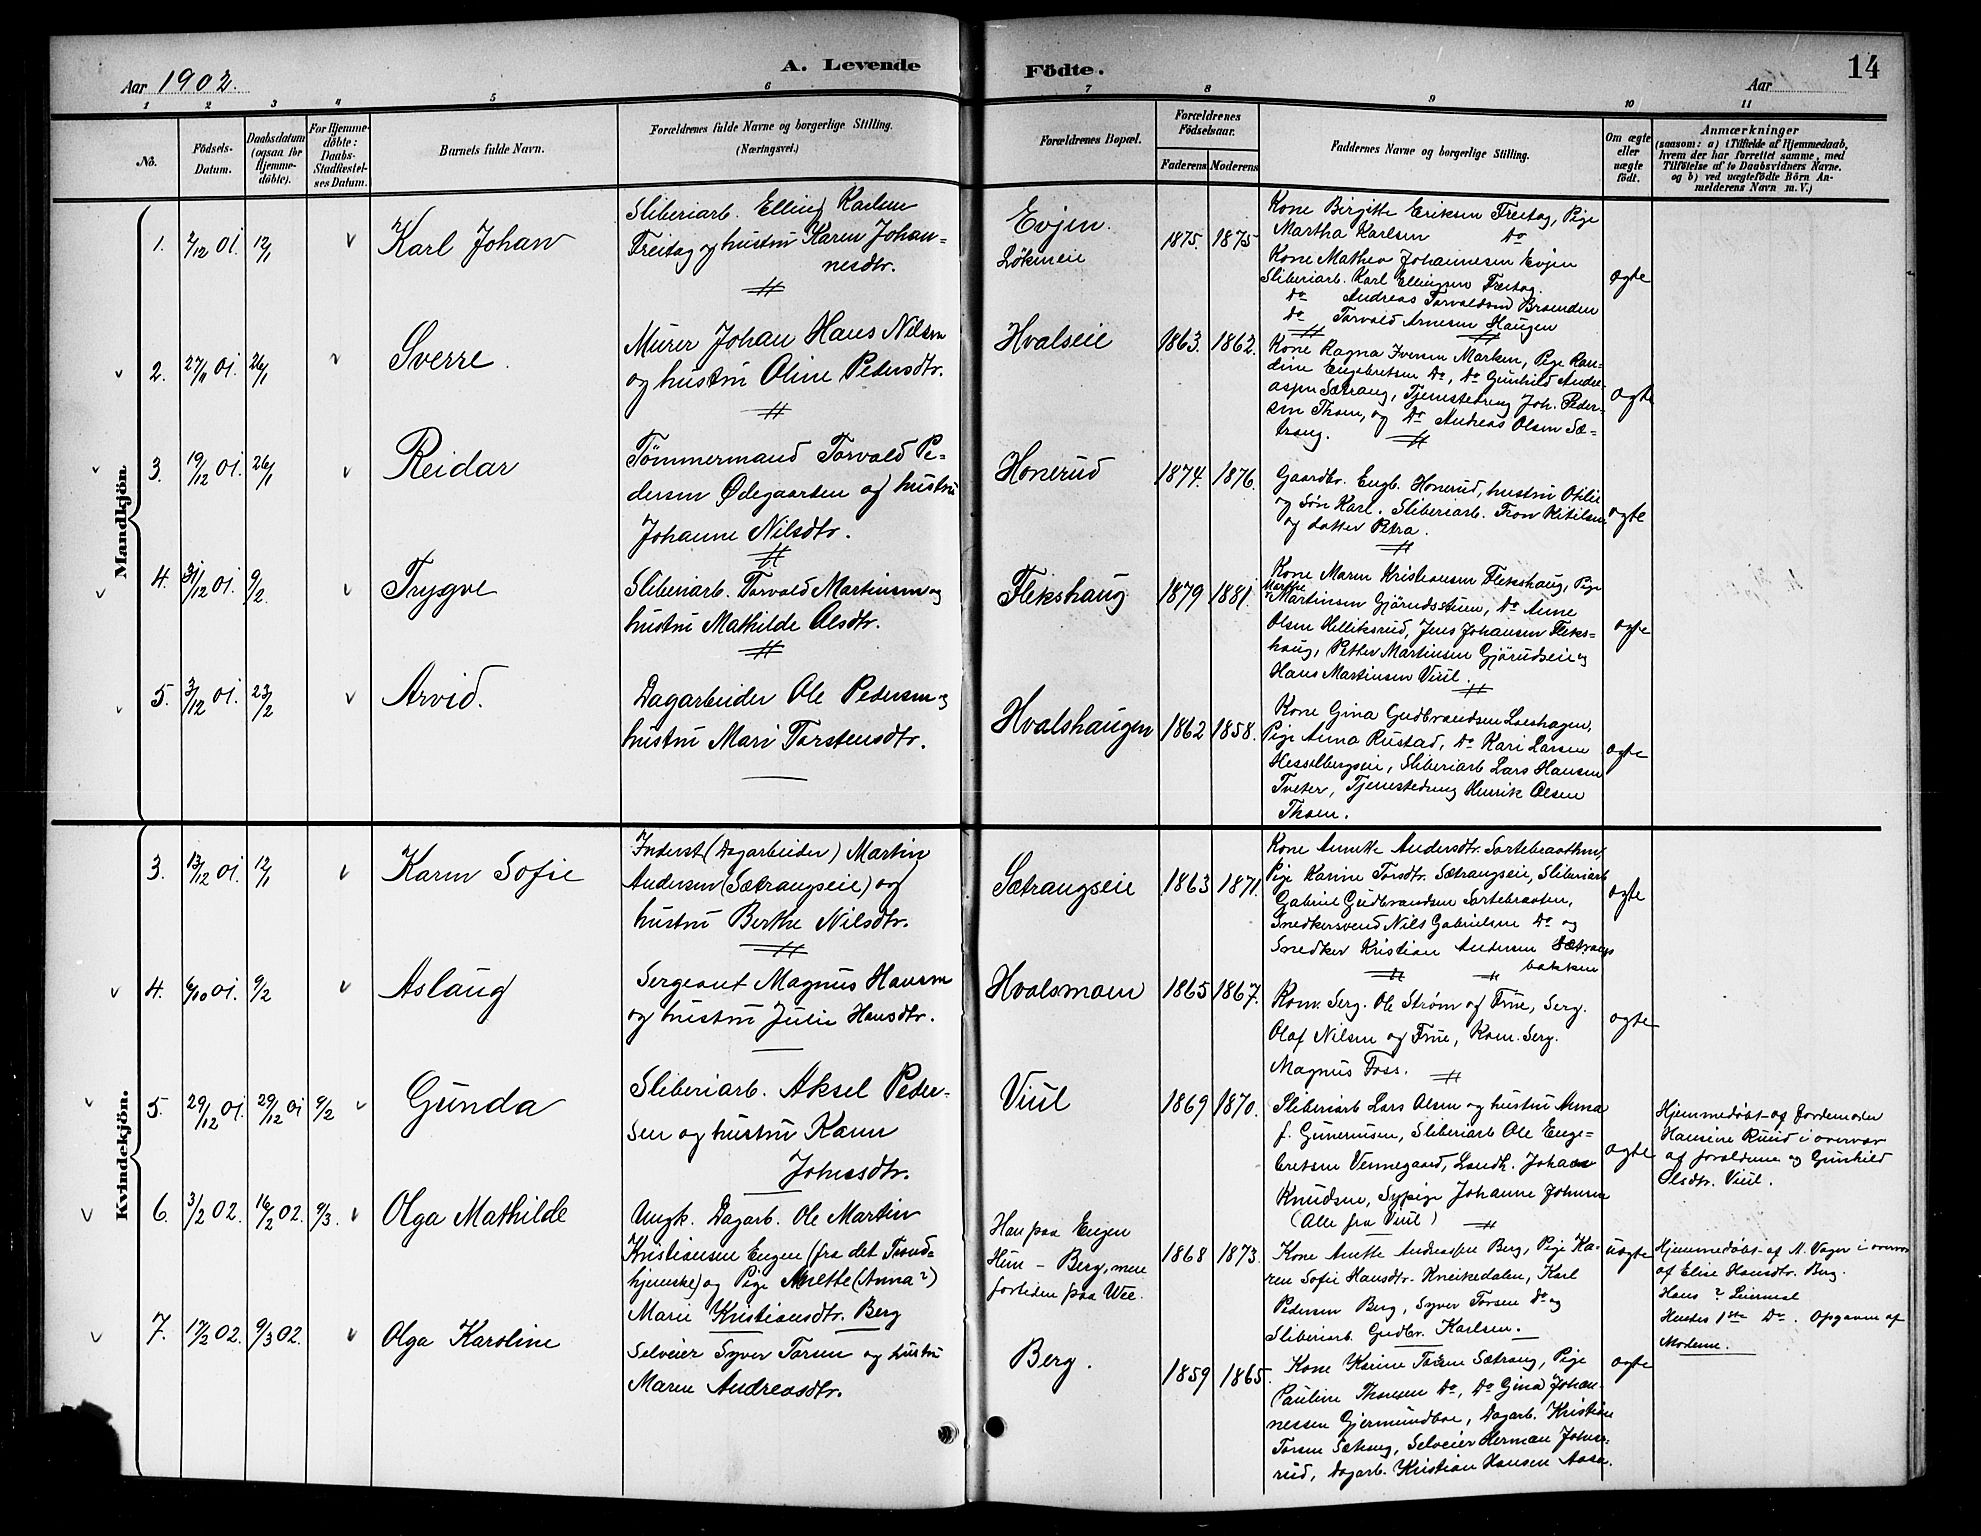 Aar 1902.
A. Levende Födte.
Aar
14
1 2 3 4 5 6 7 8 9 10 11
No.
Födsels-
Datum.
Daabsdatum
(ogsaa for
Hjemme-
döbte).
For Hjemme-
döbte:
Daabs-
Stadfæstel-
ses Datum.
Barnets fulde Navn.
Forældrenes fulde Navne og borgerlige Stilling.
(Næringsvei.)
Forældrenes Bopæl.
Forældrenes
Födselsaar.
Faderens Moderens
Faddernes Navne og borgerlige Stilling.
Om ægte
eller
uægte
födt.
Anmærkninger
(saasom: a) i Tilfælde af Hjemmedaab,
hvem der har forrettet samme, med
Tilföielse af to Daabsvidners Navne.
og b) ved uægtefödte Börn An-
melderens Navn m. V.)
Mandkjön
1. 2/12 01. 12/1 Karl Johan
Sliberiarb. Elling Karlsen
Freitag og hustru Karen Johan-
nesdtr.
Evjen.
Lökmeie
1875. 1875
Kone Birgitte Eriksen Freitag, Pige
Martha Karlsen Do
Kone Mathea Johannesen Evjen
Sliberiarb. Karl Ellingsen Freitag.
Do Andreas Torvaldsen Braenden
Do Torvald Arnesen Haugen
ægte
2. 27/11 01. 26/1 Sverre.
Murer Johan Hans Nilsen
og hustru Oline Pedersdtr.
Hvalseie
1863. 1862.
Kone Ragna Iversen Marken, Pige Ran-
dine Engebretsen Do, Do Gunhild Andre-
asen Sætrang, Tjenestedreng Joh. Peder-
sen Thoen, og Do Andreas Olsen Sæ-
trang.
ægte
3. 19/12 01. 26/1 Reidar
Tömmermand Torvald Pe-
dersen Ødegaarden og hustru
Johanne Nilsdtr.
Honerud
1874. 1876.
Gaardbr. Engb. Honerud, hustru Otilie
og Søn Karl. Sliberiarb. Tron Kitilsen
og datter Petra.
ægte
4. 31/12 01. 9/2. Trygve
Sliberiarb. Torvald Martinsen og
hustru Mathilde Olsdtr.
Flekshaug
1879 1881.
Kone Maren Kristiansen Flekshaug, Pige
Marthe
Martinsen Gjörudsstuen, Do Anne
Olsen Helliksrud, Jens Johansen Fleks-
haug, Petter Martinsen Gjörudseie og
Hans Martinsen Viul.
ægte
5. 3/12 01. 23/2 Arvid.
Dagarbeider Ole Pedersen og
hustru Mari Torstensdtr.
Hvalshaugen
1862 1858.
Kone Gina Gudbrandsen Loeshagen,
Pige Anna Rustad, Do Kari Larsen
Hesselbergseie, Sliberiarb Lars Hansen
Tveter, Tjenestedreng Henrik Olsen
Thoen.
ægte
Kvindekjön.
3. 13/12 01. 12/1 Karen Sofie
Inderst (Dagarbeider) Martin
Andersen (Sætrangseie) og
hustru Berthe Nilsdtr.
Sætrangseie
1863 1871.
Kone Annette Andersdtr. Sortebraathen,
Pige Karine Torsdtr. Sætrangseie, Sliberiarb
Gabriel Gudbrandsen Sortebraaten,
Snedkersvend Nils Gabrielsen Do og
Snedker Kristian Andersen Sætrangs
bakken
ægte
4. 6/10 01. 9/2 Aslaug
Sergeant Magnus Hansen
og hustru Julie Hansdtr.
Hvalsmoen
1865 1867.
Kom. Serg. Ole Strøm og Frue, Serg.
Olaf Nilsen og Frue, Kom. Serg.
Magnus Foss.
ægte
5. 29/12 01. 29/12 01 9/2 Gunda
Sliberiarb. Aksel Peder-
sen og hustru Karen
Johnsdtr.
Viul
1869 1870.
Sliberiarb Lars Olsen og hustru Anna
f. Gunerusen, Sliberiarb Ole Enge-
bretsen Vennegaard, Landh. Johan
Knudsen, Sypige Johanne Johnsen
(Alle fra Viul)
ægte
Hjemmedøbt af Jordemoder
Hansine Ruud i overvær
af forældrene og Gunhild
Olsdtr. Viul.
6. 3/2 02. 16/2 02. 9/3. Olga Mathilde
Ungk. Dagarb. Ole Martin
Kristiansen Engen (fra det Trond-
hjemske) og Pige Anette (Anna?)
Marie Kristiansdtr. Berg
Han paa Engen
Hun - Berg, men
fortiden paa Wee.
1868 1873.
Kone Anette Andreassen Berg, Pige Ka-
ren Sofie Hansdtr. Kneikedalen, Karl
Pedersen Berg, Syver Torsen Do og
Sliberiarb. Gudbr. Karlsen.
uægte
Hjemmedøbt af A. Vager i overvær
af Elise Hansdtr. Berg.
Hans ? Leiermaal
Hendes 1ste Do. Opgaven af
Moderen.
7. 17/2 02. 9/3 02. Olga Karoline
Selveier Syver Torsen og hustru
Maren Andreasdtr.
Berg.
1859 1865.
Kone Karine Torsen Sætrang, Pige
Pauline Thoresen Do, Do Gina Johan-
nessen Gjermundboe, Dagarb. Kristian
Torsen Sætrang, Selveier Herman Johns-
rud, Dagarb. Kristian Hansen Aasa.
ægte